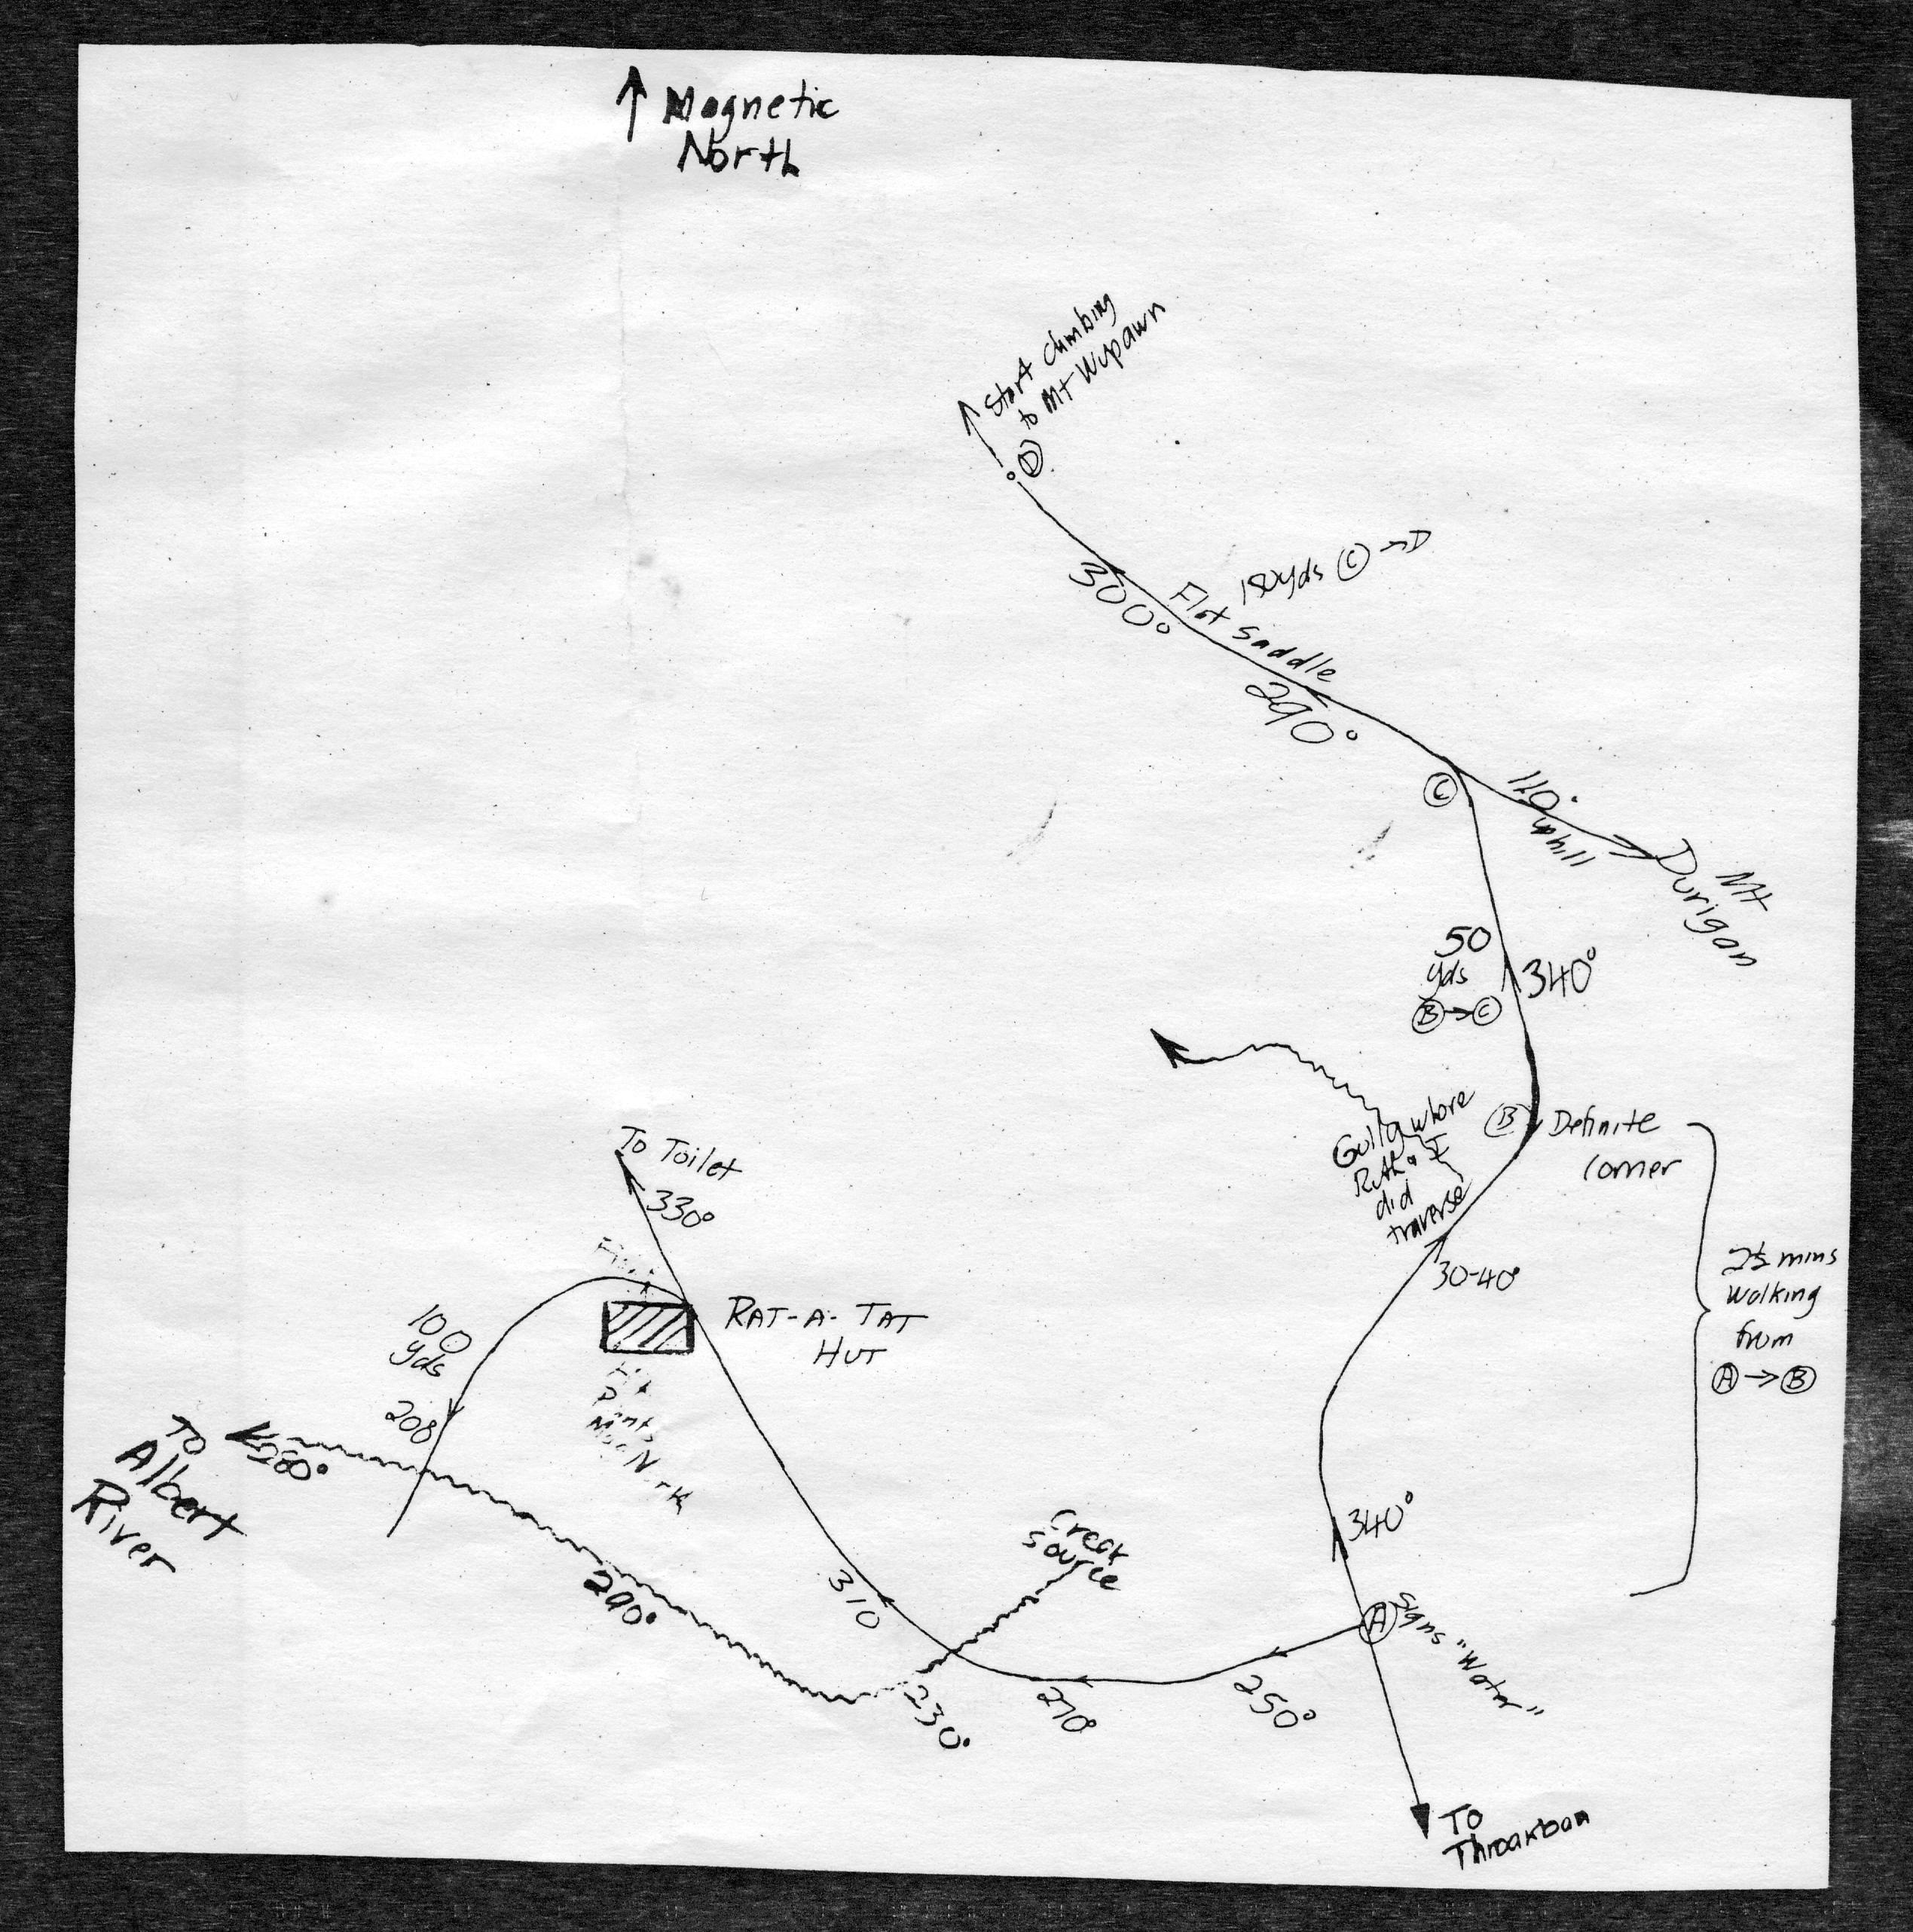 Magnetic
North
Start climbing
to Mt Wupawn
D
180yds C → D
Flat saddle
300°
290°
C
110°
uphill
Mt
Durigan
50
yds
B → C
340°
B
Definite
corner
Gully where
Ruth & I
did
traverse
30-40°
2½ mins
walking
from
A → B
To Toilet
330°
RAT-A-TAT
HUT
100
yds
208
To
Albert
River
280°
290°
Creek
source
310
230°
270°
250°
340°
A
Signs "Water"
To
Throakban